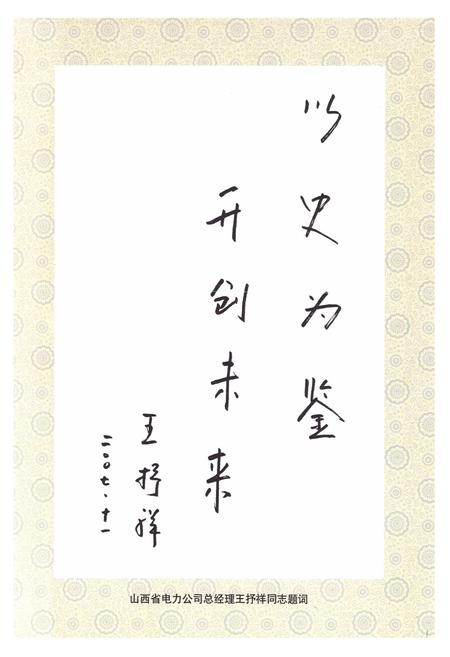 以史为鉴
开创未来
王抒祥
二〇〇七.十一
山西省电力公司总经理王抒祥同志题词